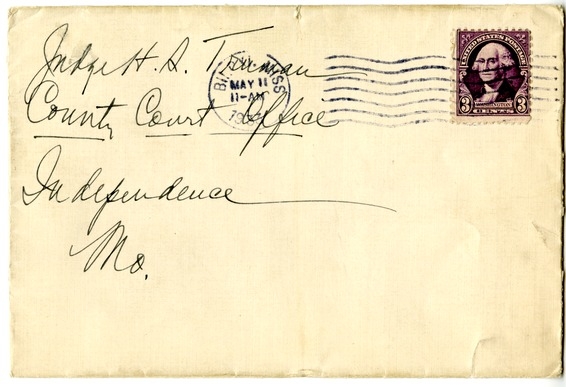 Judge H. S. Truman
County Court Office
Independence
Mo.
MISS
MAY 11
11-AM
UNITED STATES POSTAGE
3 3
WASHINGTON
CENTS